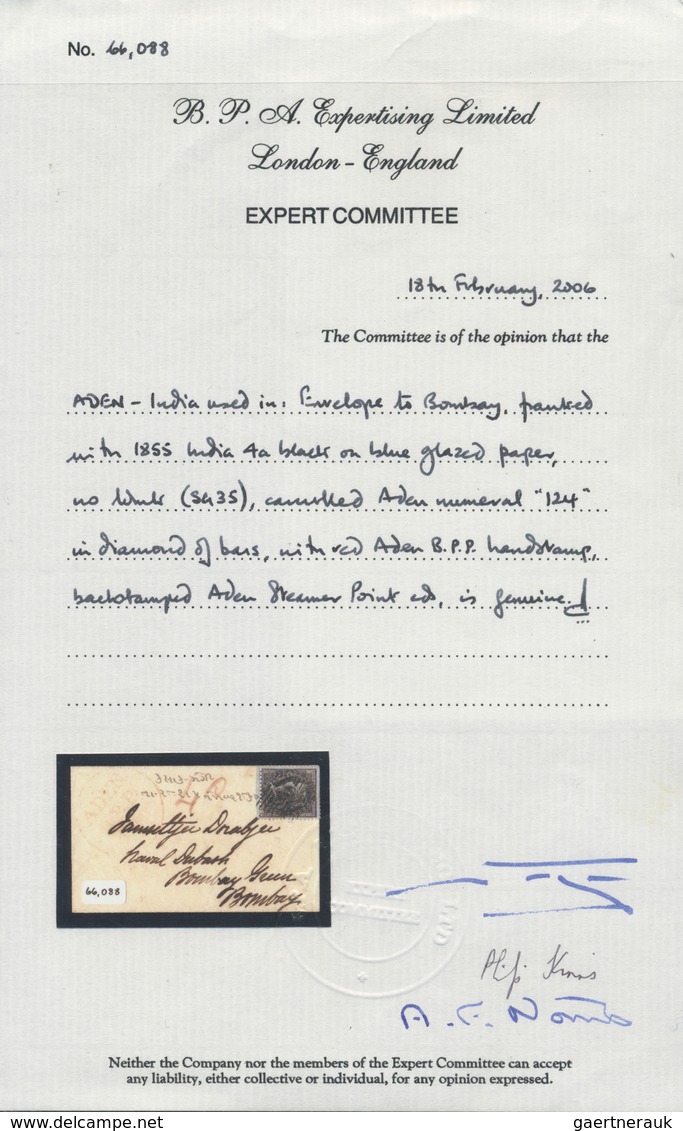 No. 66,088
B. P. A. Expertising Limited
London - England
EXPERT COMMITTEE
18th February, 2006
The Committee is of the opinion that the
ADEN - India used in: Envelope to Bombay, franked
with 1855 India 4a black on blue glazed paper,
no wmk (SG35), cancelled Aden numeral "124"
in diamond of bars, with red Aden B.P.P. handstamp,
backstamped Aden Steamer Point cds, is genuine.
Jamsetjee Dorabjee
Naval Dubash
Bombay Green
Bombay
66,088
A. F. Norris
Neither the Company nor the members of the Expert Committee can accept
any liability, either collective or individual, for any opinion expressed.
delcampe.net
gaertnerauk